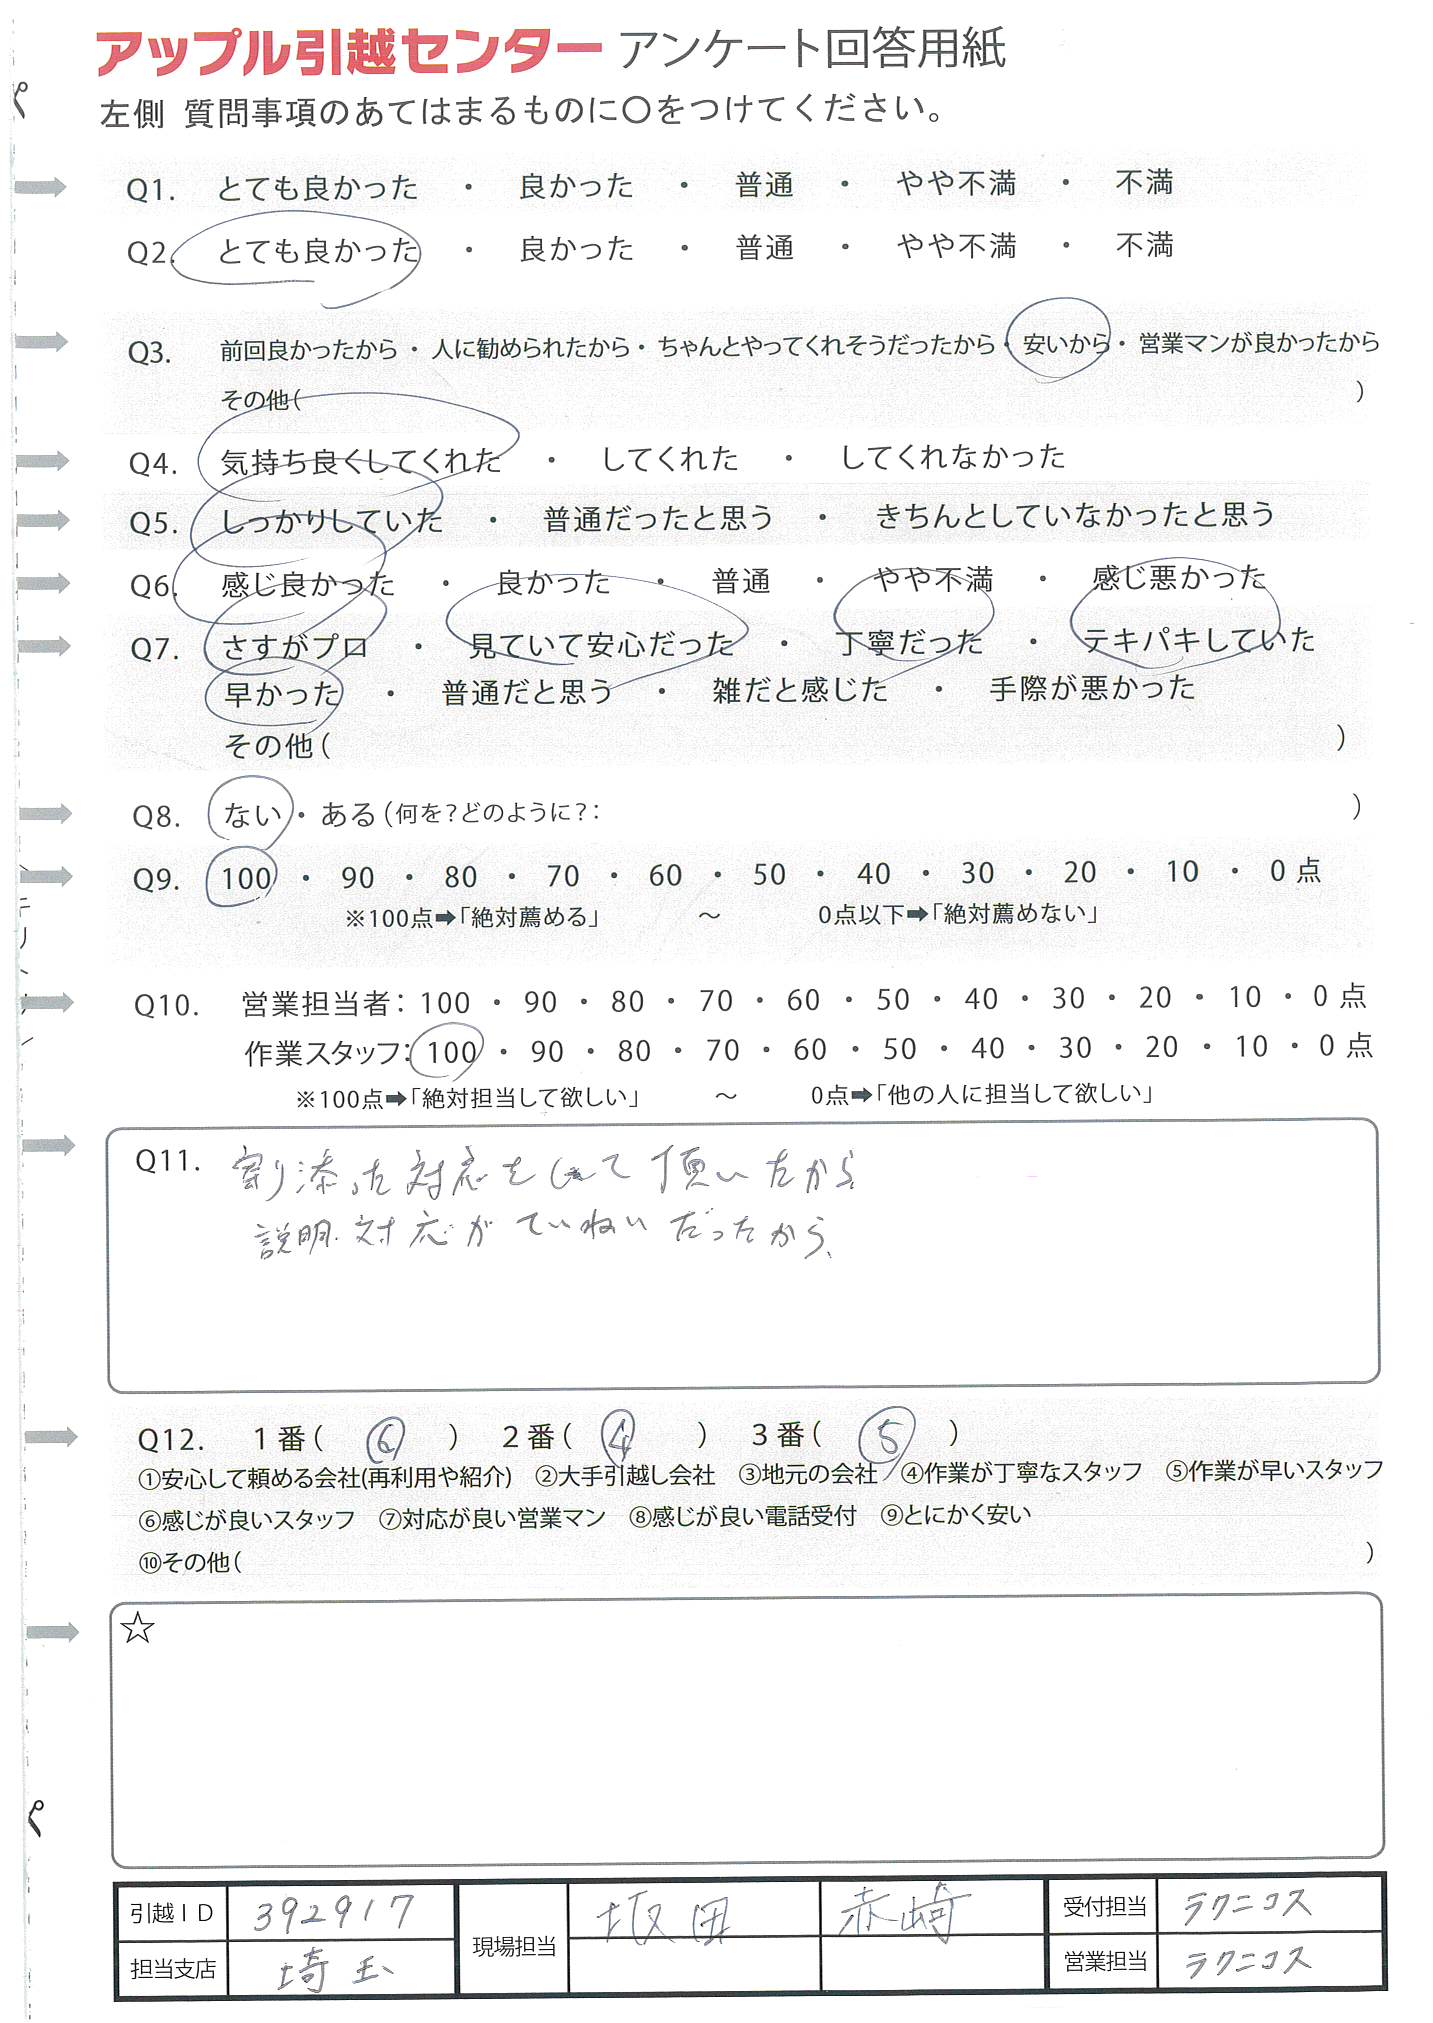 アップル引越センター アンケート回答用紙
左側 質問事項のあてはまるものに〇をつけてください。
Q1. とても良かった ・ 良かった ・ 普通 ・ やや不満 ・ 不満
Q2. とても良かった ・ 良かった ・ 普通 ・ やや不満 ・ 不満
Q3. 前回良かったから・人に勧められたから・ちゃんとやってくれそうだったから・安いから・営業マンが良かったから
その他( )
Q4. 気持ち良くしてくれた ・ してくれた ・ してくれなかった
Q5. しっかりしていた ・ 普通だったと思う ・ きちんとしていなかったと思う
Q6. 感じ良かった ・ 良かった ・ 普通 ・ やや不満 ・ 感じ悪かった
Q7. さすがプロ ・ 見ていて安心だった ・ 丁寧だった ・ テキパキしていた
早かった ・ 普通だと思う ・ 雑だと感じた ・ 手際が悪かった
その他( )
Q8. ない・ある(何を?どのように?: )
Q9. 100 ・ 90 ・ 80 ・ 70 ・ 60 ・ 50 ・ 40 ・ 30 ・ 20 ・ 10 ・ 0点
※100点➡「絶対薦める」 ～ 0点以下➡「絶対薦めない」
Q10. 営業担当者: 100 ・ 90 ・ 80 ・ 70 ・ 60 ・ 50 ・ 40 ・ 30 ・ 20 ・ 10 ・ 0点
作業スタッフ: 100 ・ 90 ・ 80 ・ 70 ・ 60 ・ 50 ・ 40 ・ 30 ・ 20 ・ 10 ・ 0点
※100点➡「絶対担当して欲しい」 ～ 0点➡「他の人に担当して欲しい」
Q11. 寄り添った対応をして頂いたから
説明.対応がていねいだったから、
Q12. 1番( ⑥ ) 2番( ④ ) 3番( ⑤ )
①安心して頼める会社(再利用や紹介) ②大手引越し会社 ③地元の会社 ④作業が丁寧なスタッフ ⑤作業が早いスタッフ
⑥感じが良いスタッフ ⑦対応が良い営業マン ⑧感じが良い電話受付 ⑨とにかく安い
⑩その他( )
☆
引越ID 392917 現場担当 坂田 赤崎 受付担当 ラクニコス
担当支店 埼玉 営業担当 ラクニコス